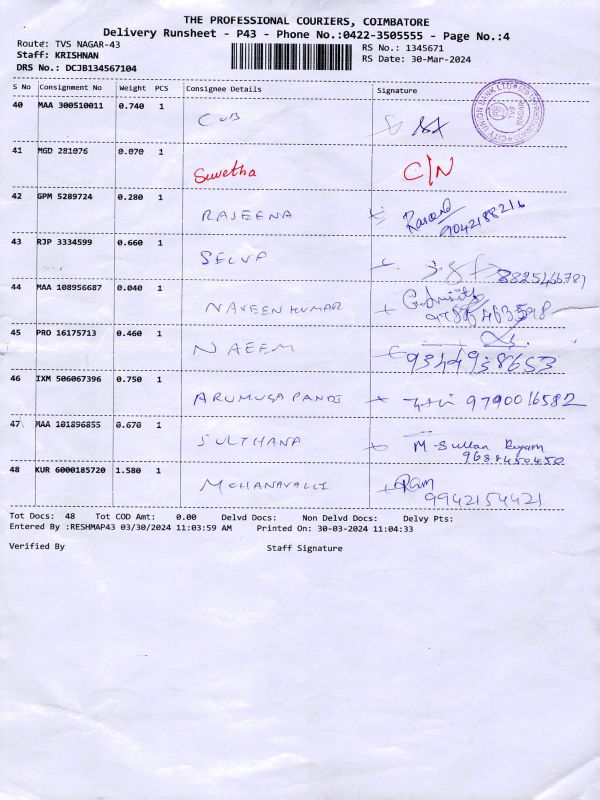 THE PROFESSIONAL COURIERS, COIMBATORE
Delivery Runsheet - P43 - Phone No.:0422-3505555 - Page No.:4
Route: TVS NAGAR-43
RS No.: 1345671
Staff: KRISHNAN
RS Date: 30-Mar-2024
DRS No.: DCJB134567104
S No Consignment No Weight PCS Consignee Details Signature
40 MAA 300510011 0.740 1 CUB
CITY UNION BANK LTD TVS NAGAR
41 MGD 281076 0.070 1 Suvetha C/N
42 GPM 5289724 0.280 1 RAJEENA
9042188216
43 RJP 3334599 0.660 1 SELVA
44 MAA 108956687 0.040 1 NAVEEN KUMAR
45 PRO 16175713 0.460 1 NAEEM
9344938653
46 IXM 506067396 0.750 1 ARUMUGA PANDI 9790016582
47 MAA 101896855 0.670 1 SULTHANA M-Sultan
48 KUR 6000185720 1.580 1 MOHANAVALLI Ram
9942154421
Tot Docs: 48 Tot COD Amt: 0.00 Delvd Docs: Non Delvd Docs: Delvy Pts:
Entered By :RESHMAP43 03/30/2024 11:03:59 AM Printed On: 30-03-2024 11:04:33
Verified By Staff Signature